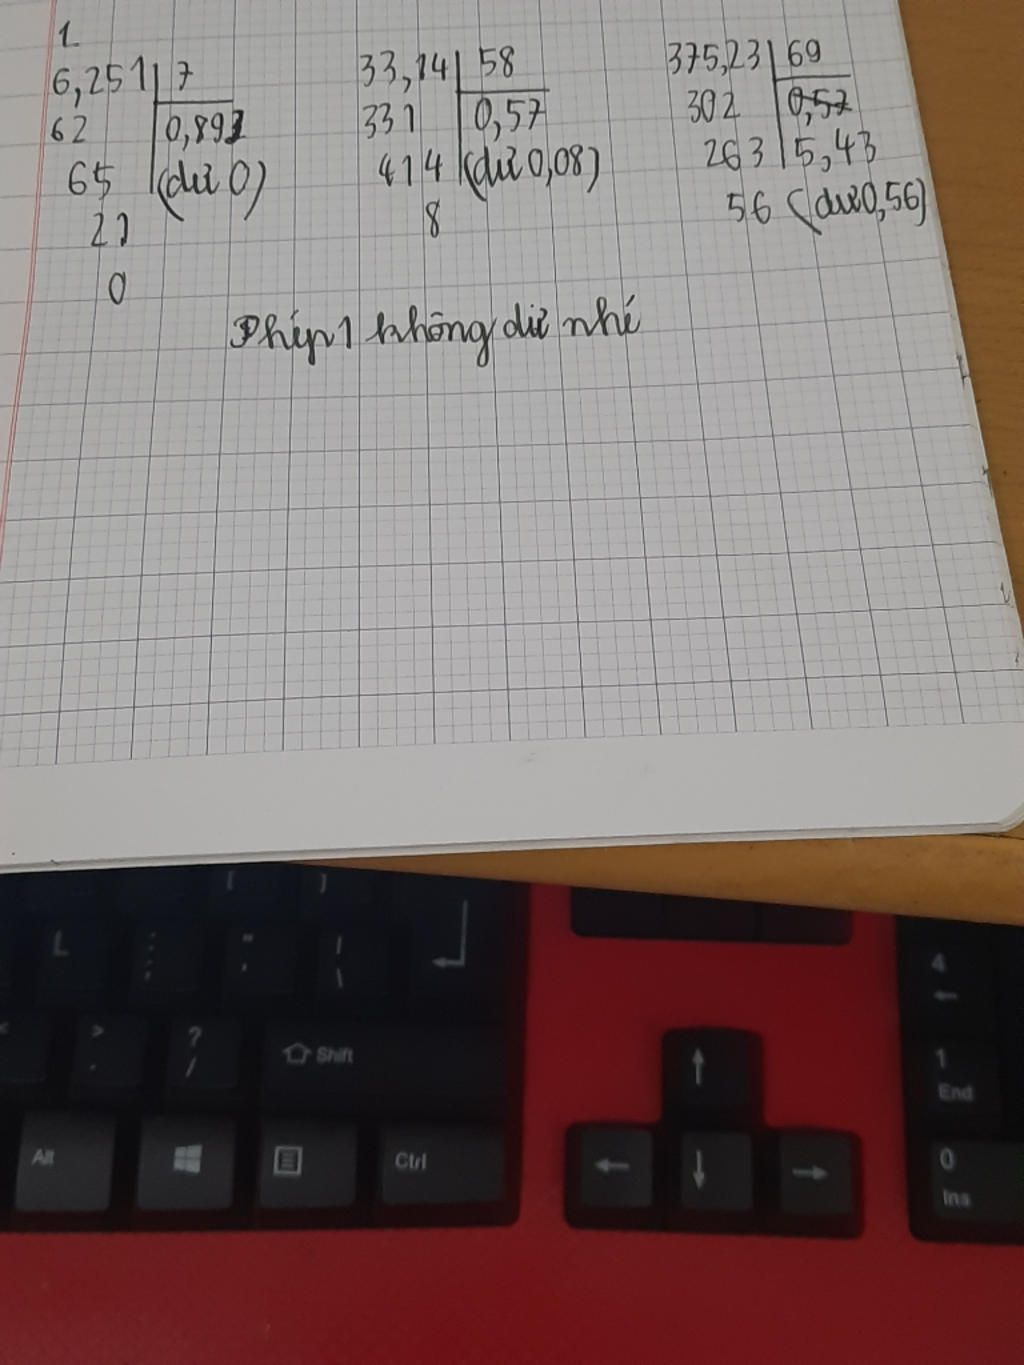 1
6,251 7
62 0,893
65 (dư 0)
21
0
33,14 58
331 0,57
414 (dư 0,08)
8
375,23 69
302 0,57
263 5,43
56 (dư 0,56)
Phép 1 không dư nhé
[ ]
L : ; " ' | \
< > . ? / Shift
Alt Ctrl
4
1
End
0
Ins